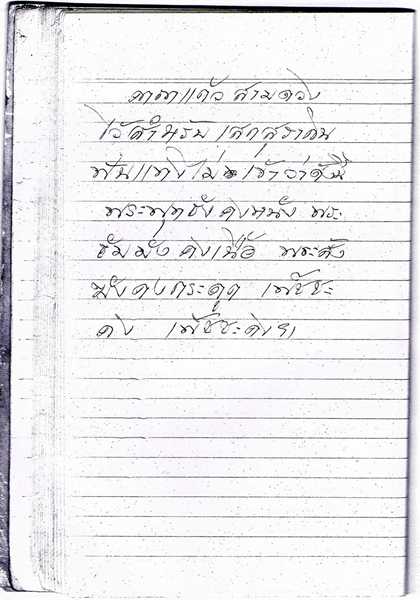 คาถาแก้วสามดวง
ไว้สำหรับเสกสุรากิน
ฟันแทงไม่เข้าว่าดังนี้
พระพุทธังคงหนัง พระ
ธัมมังคงเนื้อ พระสัง
ฆังคงกระดูก เพ็ชชะ
คง เพ็ชชะคงฯ